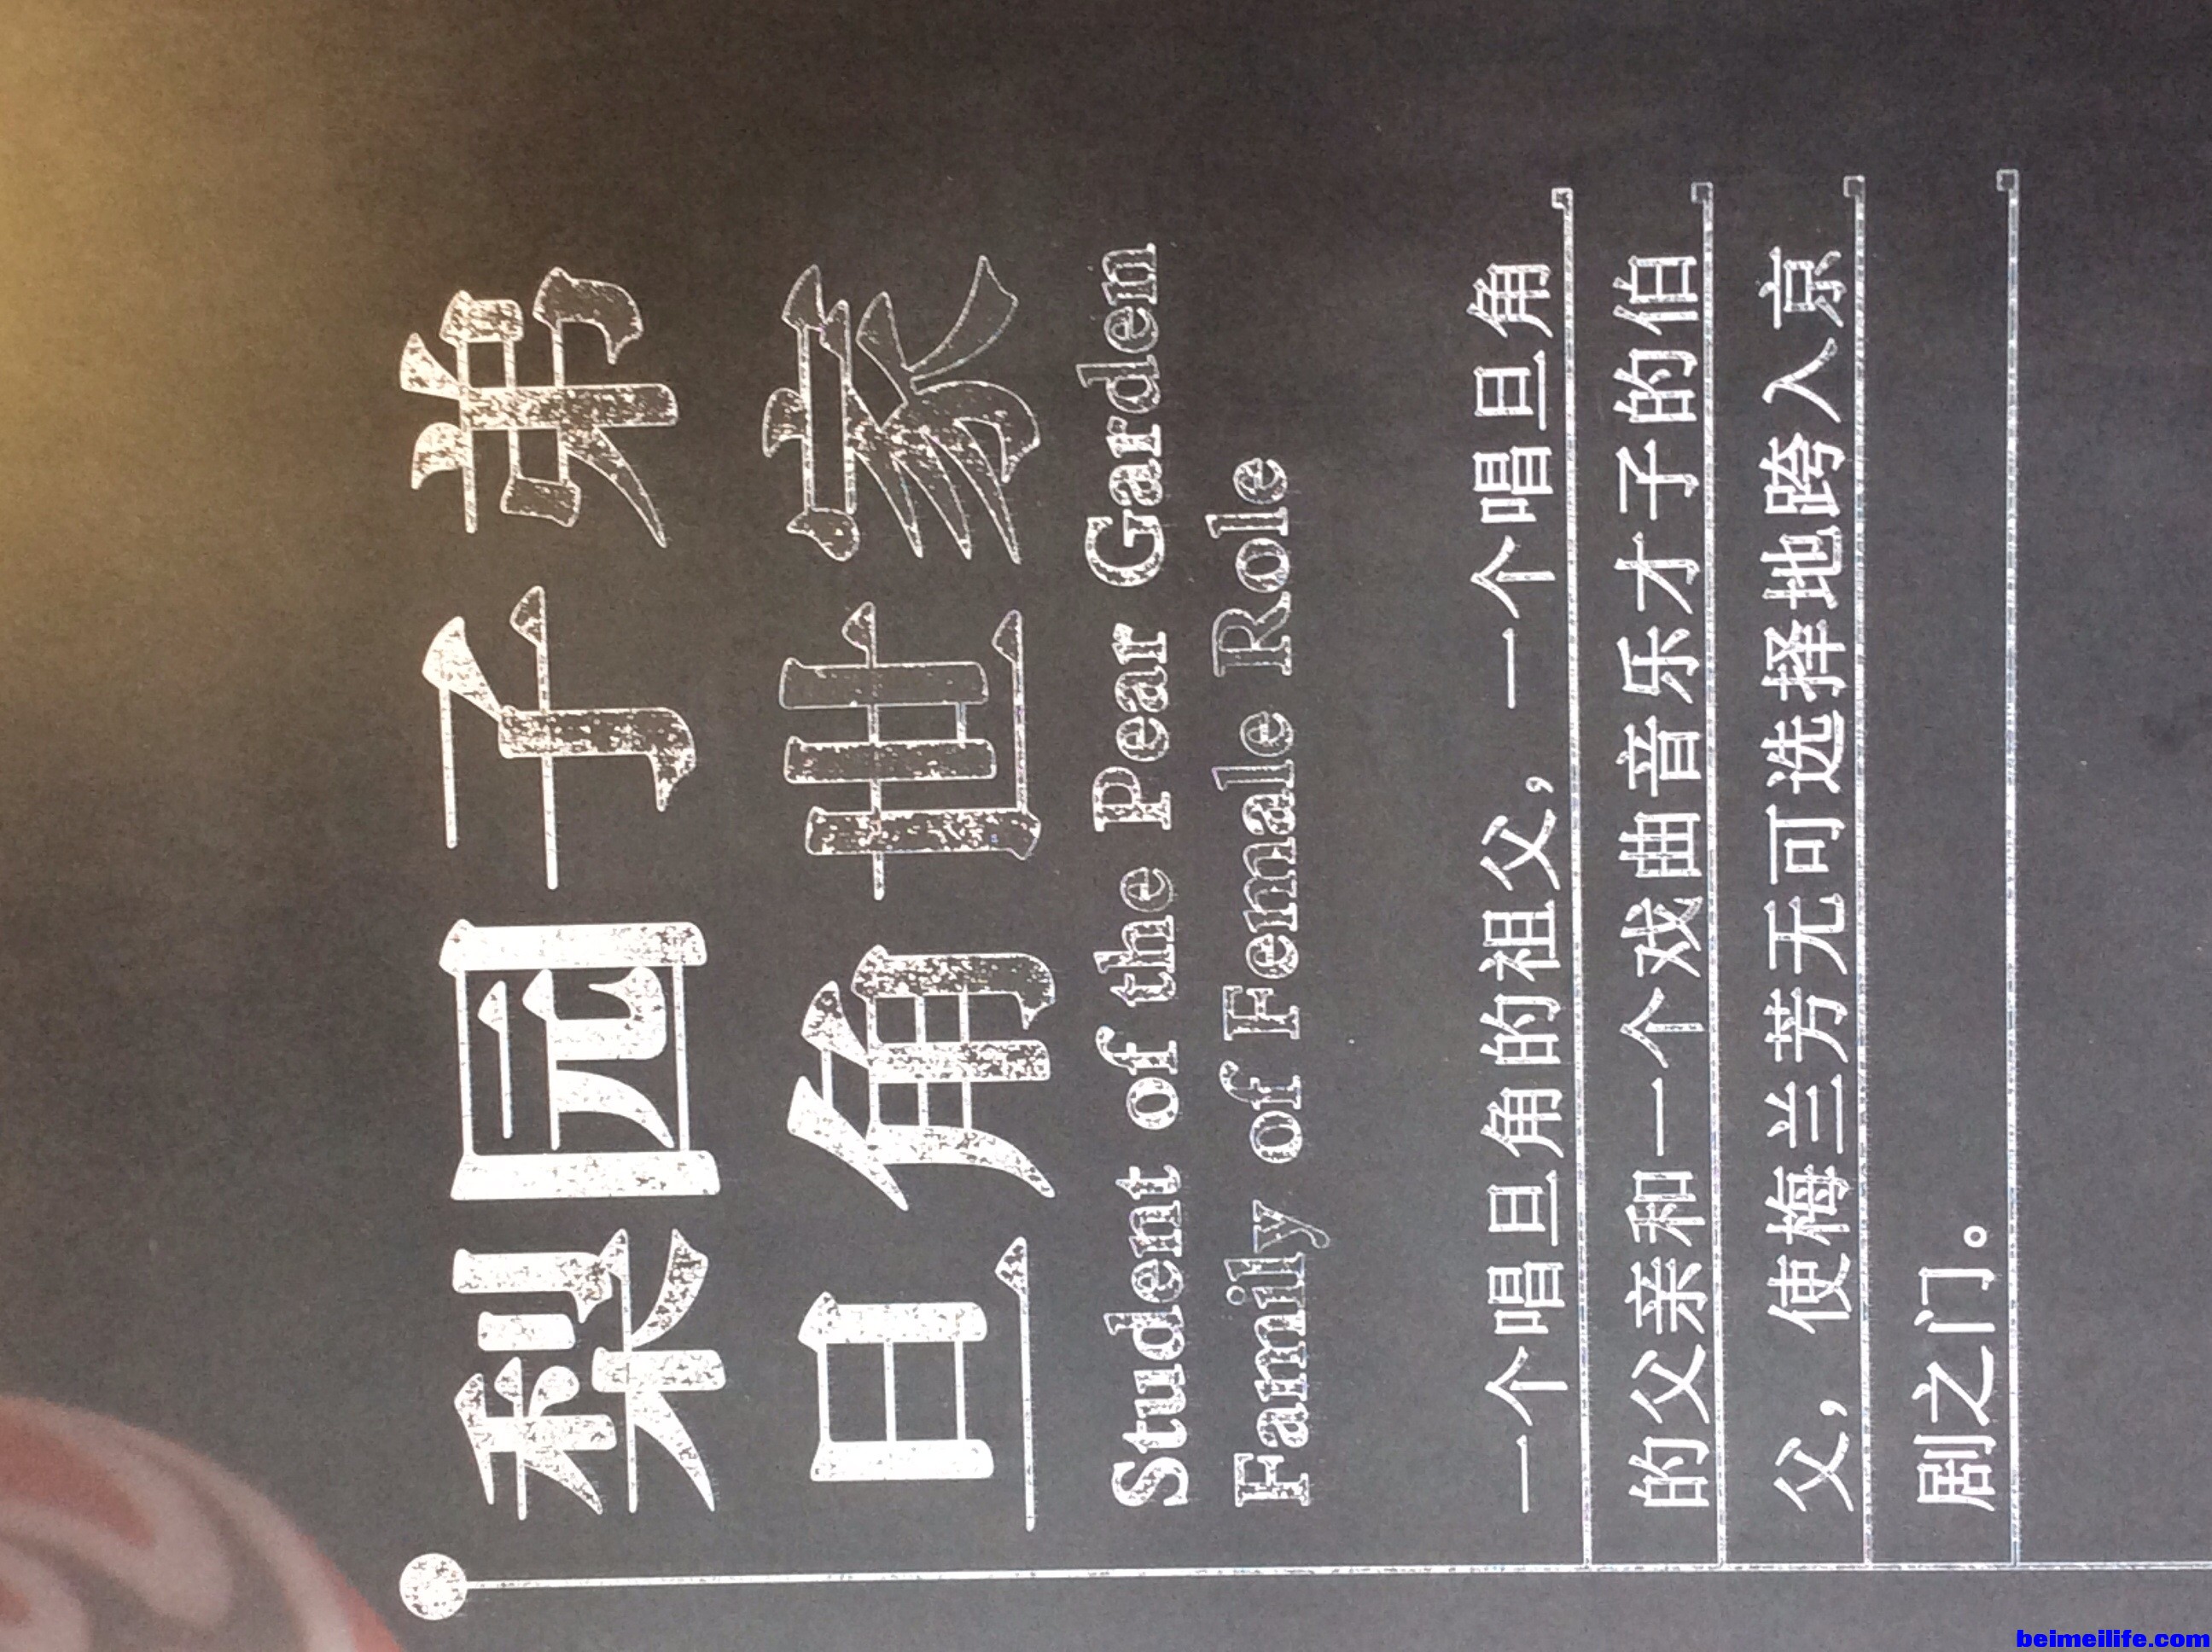 梨园子弟
旦角世家
Student of the Pear Garden
Family of Female Role
一个唱旦角的祖父，一个唱旦角
的父亲和一个戏曲音乐才子的伯
父，使梅兰芳无可选择地跨入京
剧之门。
beimeilife.com